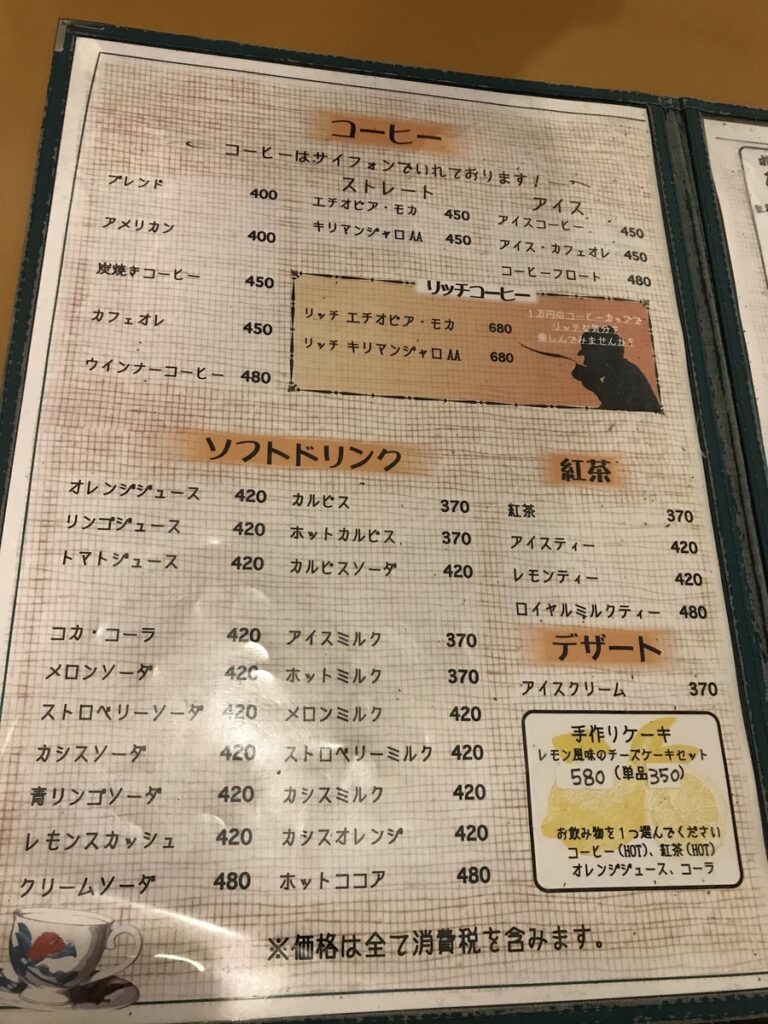 コーヒー
コーヒーはサイフォンでいれております！
ブレンド 400
アメリカン 400
炭焼きコーヒー 450
カフェオレ 450
ウインナーコーヒー 480
ストレート
エチオピア・モカ 450
キリマンジャロAA 450
アイス
アイスコーヒー 450
アイス・カフェオレ 450
コーヒーフロート 480
リッチコーヒー
リッチ エチオピア・モカ 680
リッチ キリマンジャロAA 680
1万円のコーヒーカップで
リッチな気分を
楽しんでみませんか？
ソフトドリンク
オレンジジュース 420
リンゴジュース 420
トマトジュース 420
コカ・コーラ 420
メロンソーダ 420
ストロベリーソーダ 420
カシスソーダ 420
青リンゴソーダ 420
レモンスカッシュ 420
クリームソーダ 480
カルピス 370
ホットカルピス 370
カルピスソーダ 420
アイスミルク 370
ホットミルク 370
メロンミルク 420
ストロベリーミルク 420
カシスミルク 420
カシスオレンジ 420
ホットココア 480
紅茶
紅茶 370
アイスティー 420
レモンティー 420
ロイヤルミルクティー 480
デザート
アイスクリーム 370
手作りケーキ
レモン風味のチーズケーキセット
580（単品350）
お飲み物を1つ選んでください
コーヒー(HOT)、紅茶(HOT)
オレンジジュース、コーラ
※価格は全て消費税を含みます。